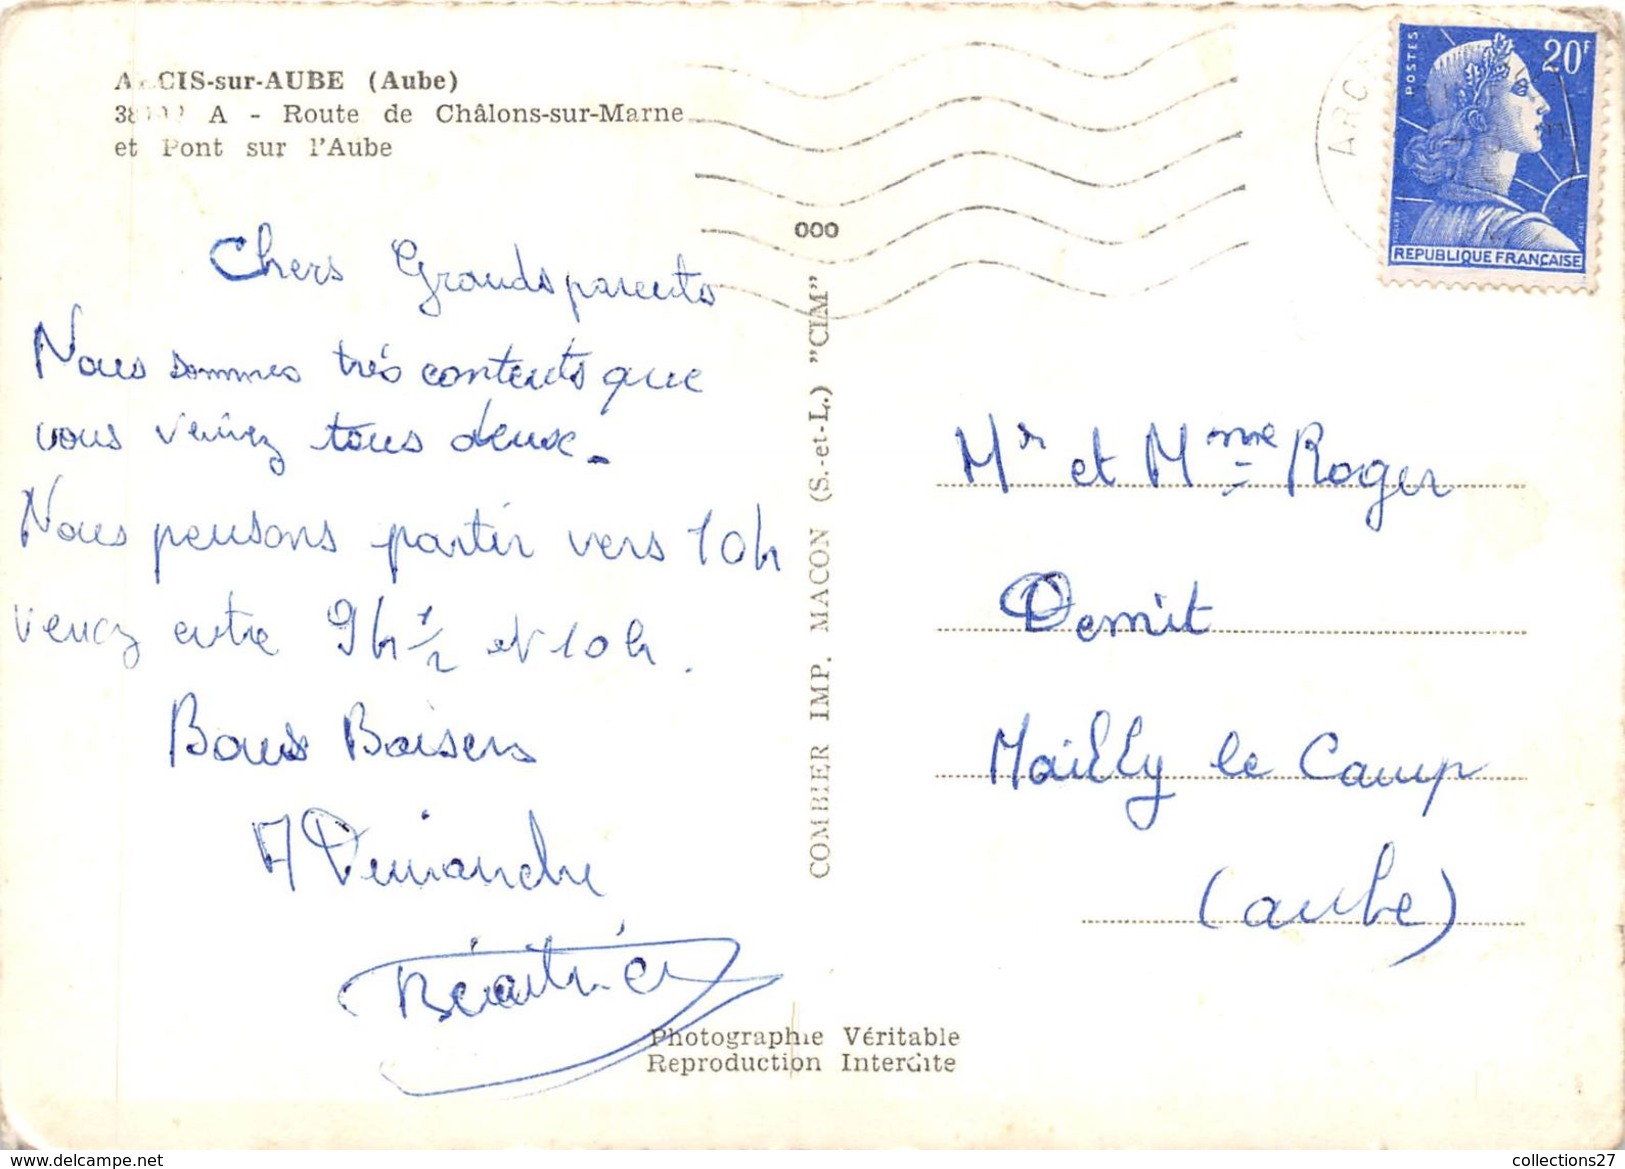 ARCIS-sur-AUBE (Aube)
A - Route de Châlons-sur-Marne
et Pont sur l'Aube
POSTES
20F
REPUBLIQUE FRANÇAISE
ARC
000
COMBIER IMP. MACON (S.-et-L.) "CIM"
Chers Grandsparents
Nous sommes très contents que
vous veniez tous deux.
Nous pensons partir vers 10h
venez entre 9h 1/2 et 10h.
Bons Baisers
A Dimanche
Béatrice
Mr et Mme Roger
Demit
Mailly le Camp
(aube)
Photographie Véritable
Reproduction Interdite
collections27
www.delcampe.net